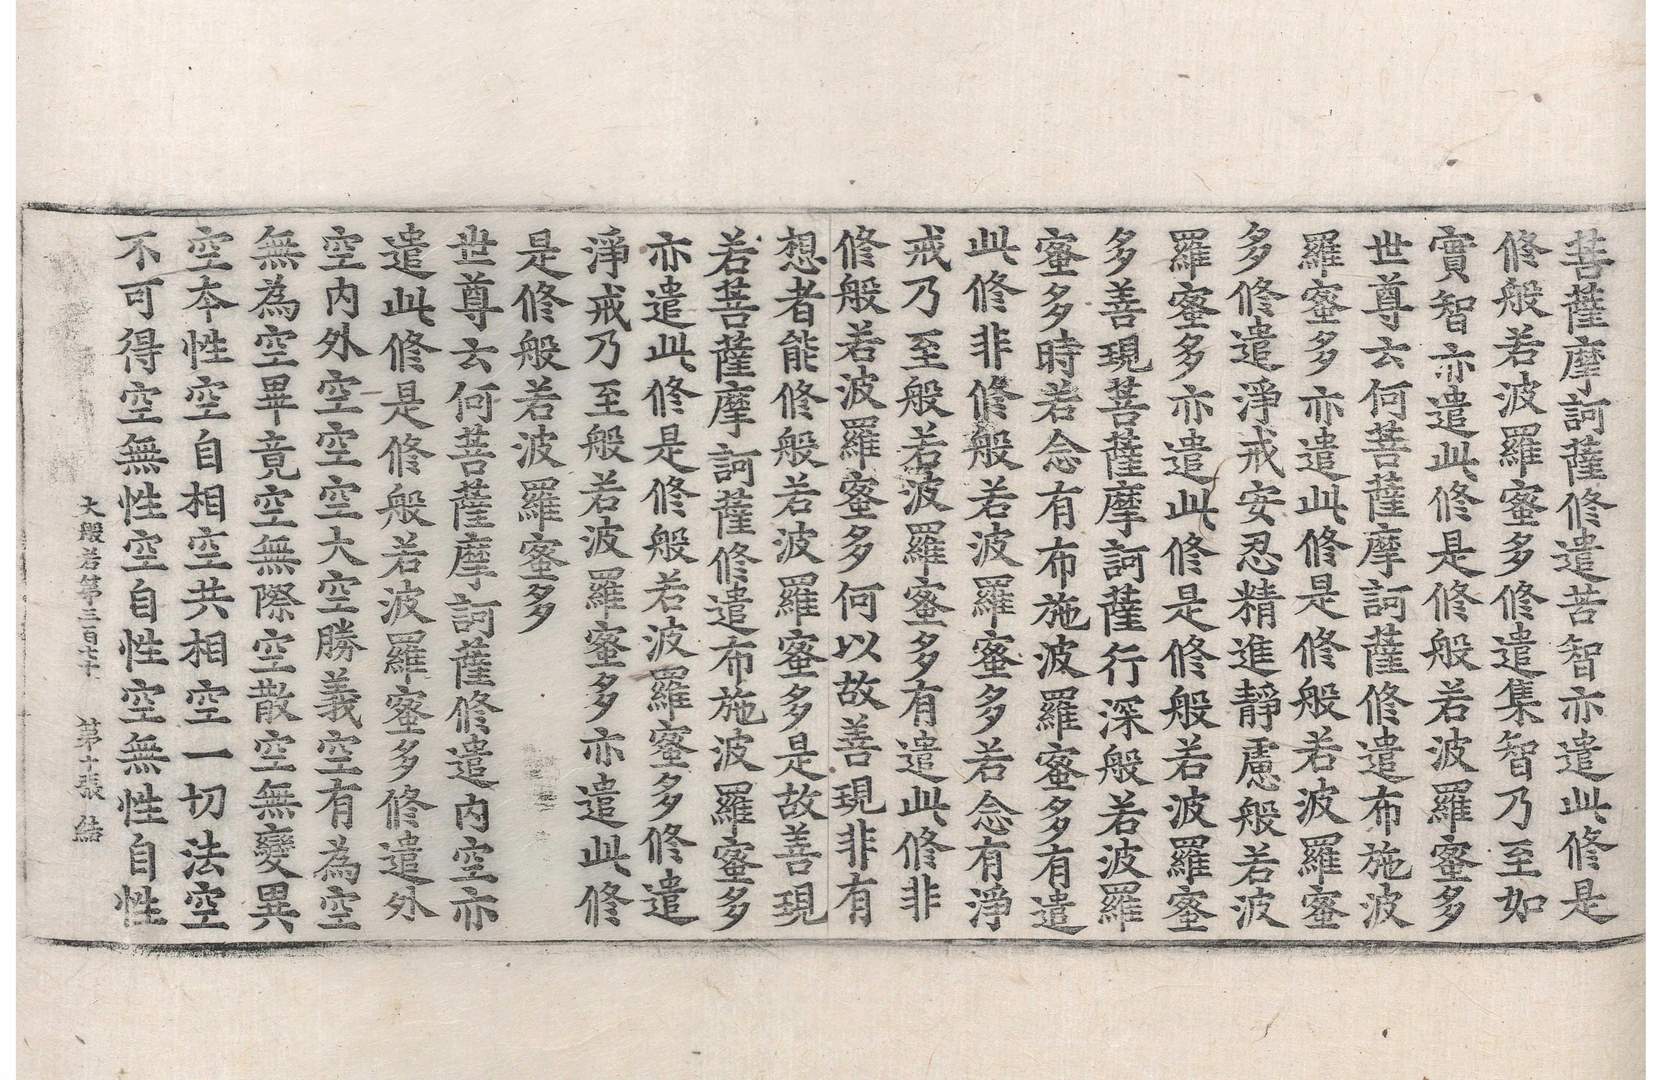 菩薩摩訶薩修遣苦智亦遣此修是
修般若波羅蜜多修遣集智乃至如
實智亦遣此修是修般若波羅蜜多
世尊云何菩薩摩訶薩修遣布施波
羅蜜多亦遣此修是修般若波羅蜜
多修遣淨戒安忍精進靜慮般若波
羅蜜多亦遣此修是修般若波羅蜜
多善現菩薩摩訶薩行深般若波羅
蜜多時若念有布施波羅蜜多有遣
此修非修般若波羅蜜多若念有淨
戒乃至般若波羅蜜多有遣此修非
修般若波羅蜜多何以故善現非有
想者能修般若波羅蜜多是故善現
若菩薩摩訶薩修遣布施波羅蜜多
亦遣此修是修般若波羅蜜多修遣
淨戒乃至般若波羅蜜多亦遣此修
是修般若波羅蜜多
世尊云何菩薩摩訶薩修遣内空亦
遣此修是修般若波羅蜜多修遣外
空内外空空空大空勝義空有為空
無為空畢竟空無際空散空無變異
空本性空自相空共相空一切法空
不可得空無性空自性空無性自性
大般若第三百七十 第十張 結